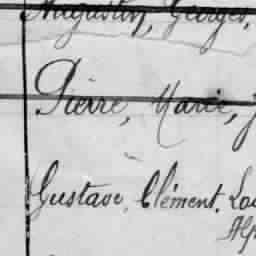 Augustin, Georges,
Pierre, Marie,
Gustave, Clément,